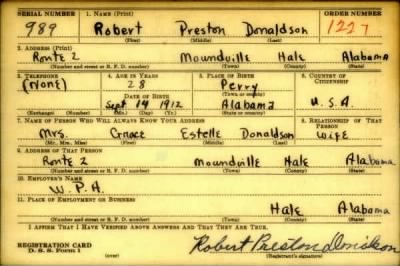 SERIAL NUMBER 1. NAME (Print) ORDER NUMBER
989 Robert Preston Donaldson 1227
(First) (Middle) (Last)
2. ADDRESS (Print)
Route 2 Moundville Hale Alabama
(Number and street or R. F. D. number) (Town) (County) (State)
3. TELEPHONE 4. AGE IN YEARS 5. PLACE OF BIRTH 6. COUNTRY OF CITIZENSHIP
(None) 28 Perry
DATE OF BIRTH (Town or county)
Sept 14 1912 Alabama U.S.A.
(Exchange) (Number) (Mo.) (Day) (Yr.) (State or country)
7. NAME OF PERSON WHO WILL ALWAYS KNOW YOUR ADDRESS 8. RELATIONSHIP OF THAT PERSON
Mrs. Grace Estelle Donaldson Wife
(Mr., Mrs., Miss) (First) (Middle) (Last)
9. ADDRESS OF THAT PERSON
Route 2 Moundville Hale Alabama
(Number and street or R. F. D. number) (Town) (County) (State)
10. EMPLOYER'S NAME
W.P.A.
11. PLACE OF EMPLOYMENT OR BUSINESS
Hale Alabama
(Number and street or R. F. D. number) (Town) (County) (State)
I AFFIRM THAT I HAVE VERIFIED ABOVE ANSWERS AND THAT THEY ARE TRUE.
REGISTRATION CARD Robert Preston
D. S. S. Form 1 (Registrant's signature)